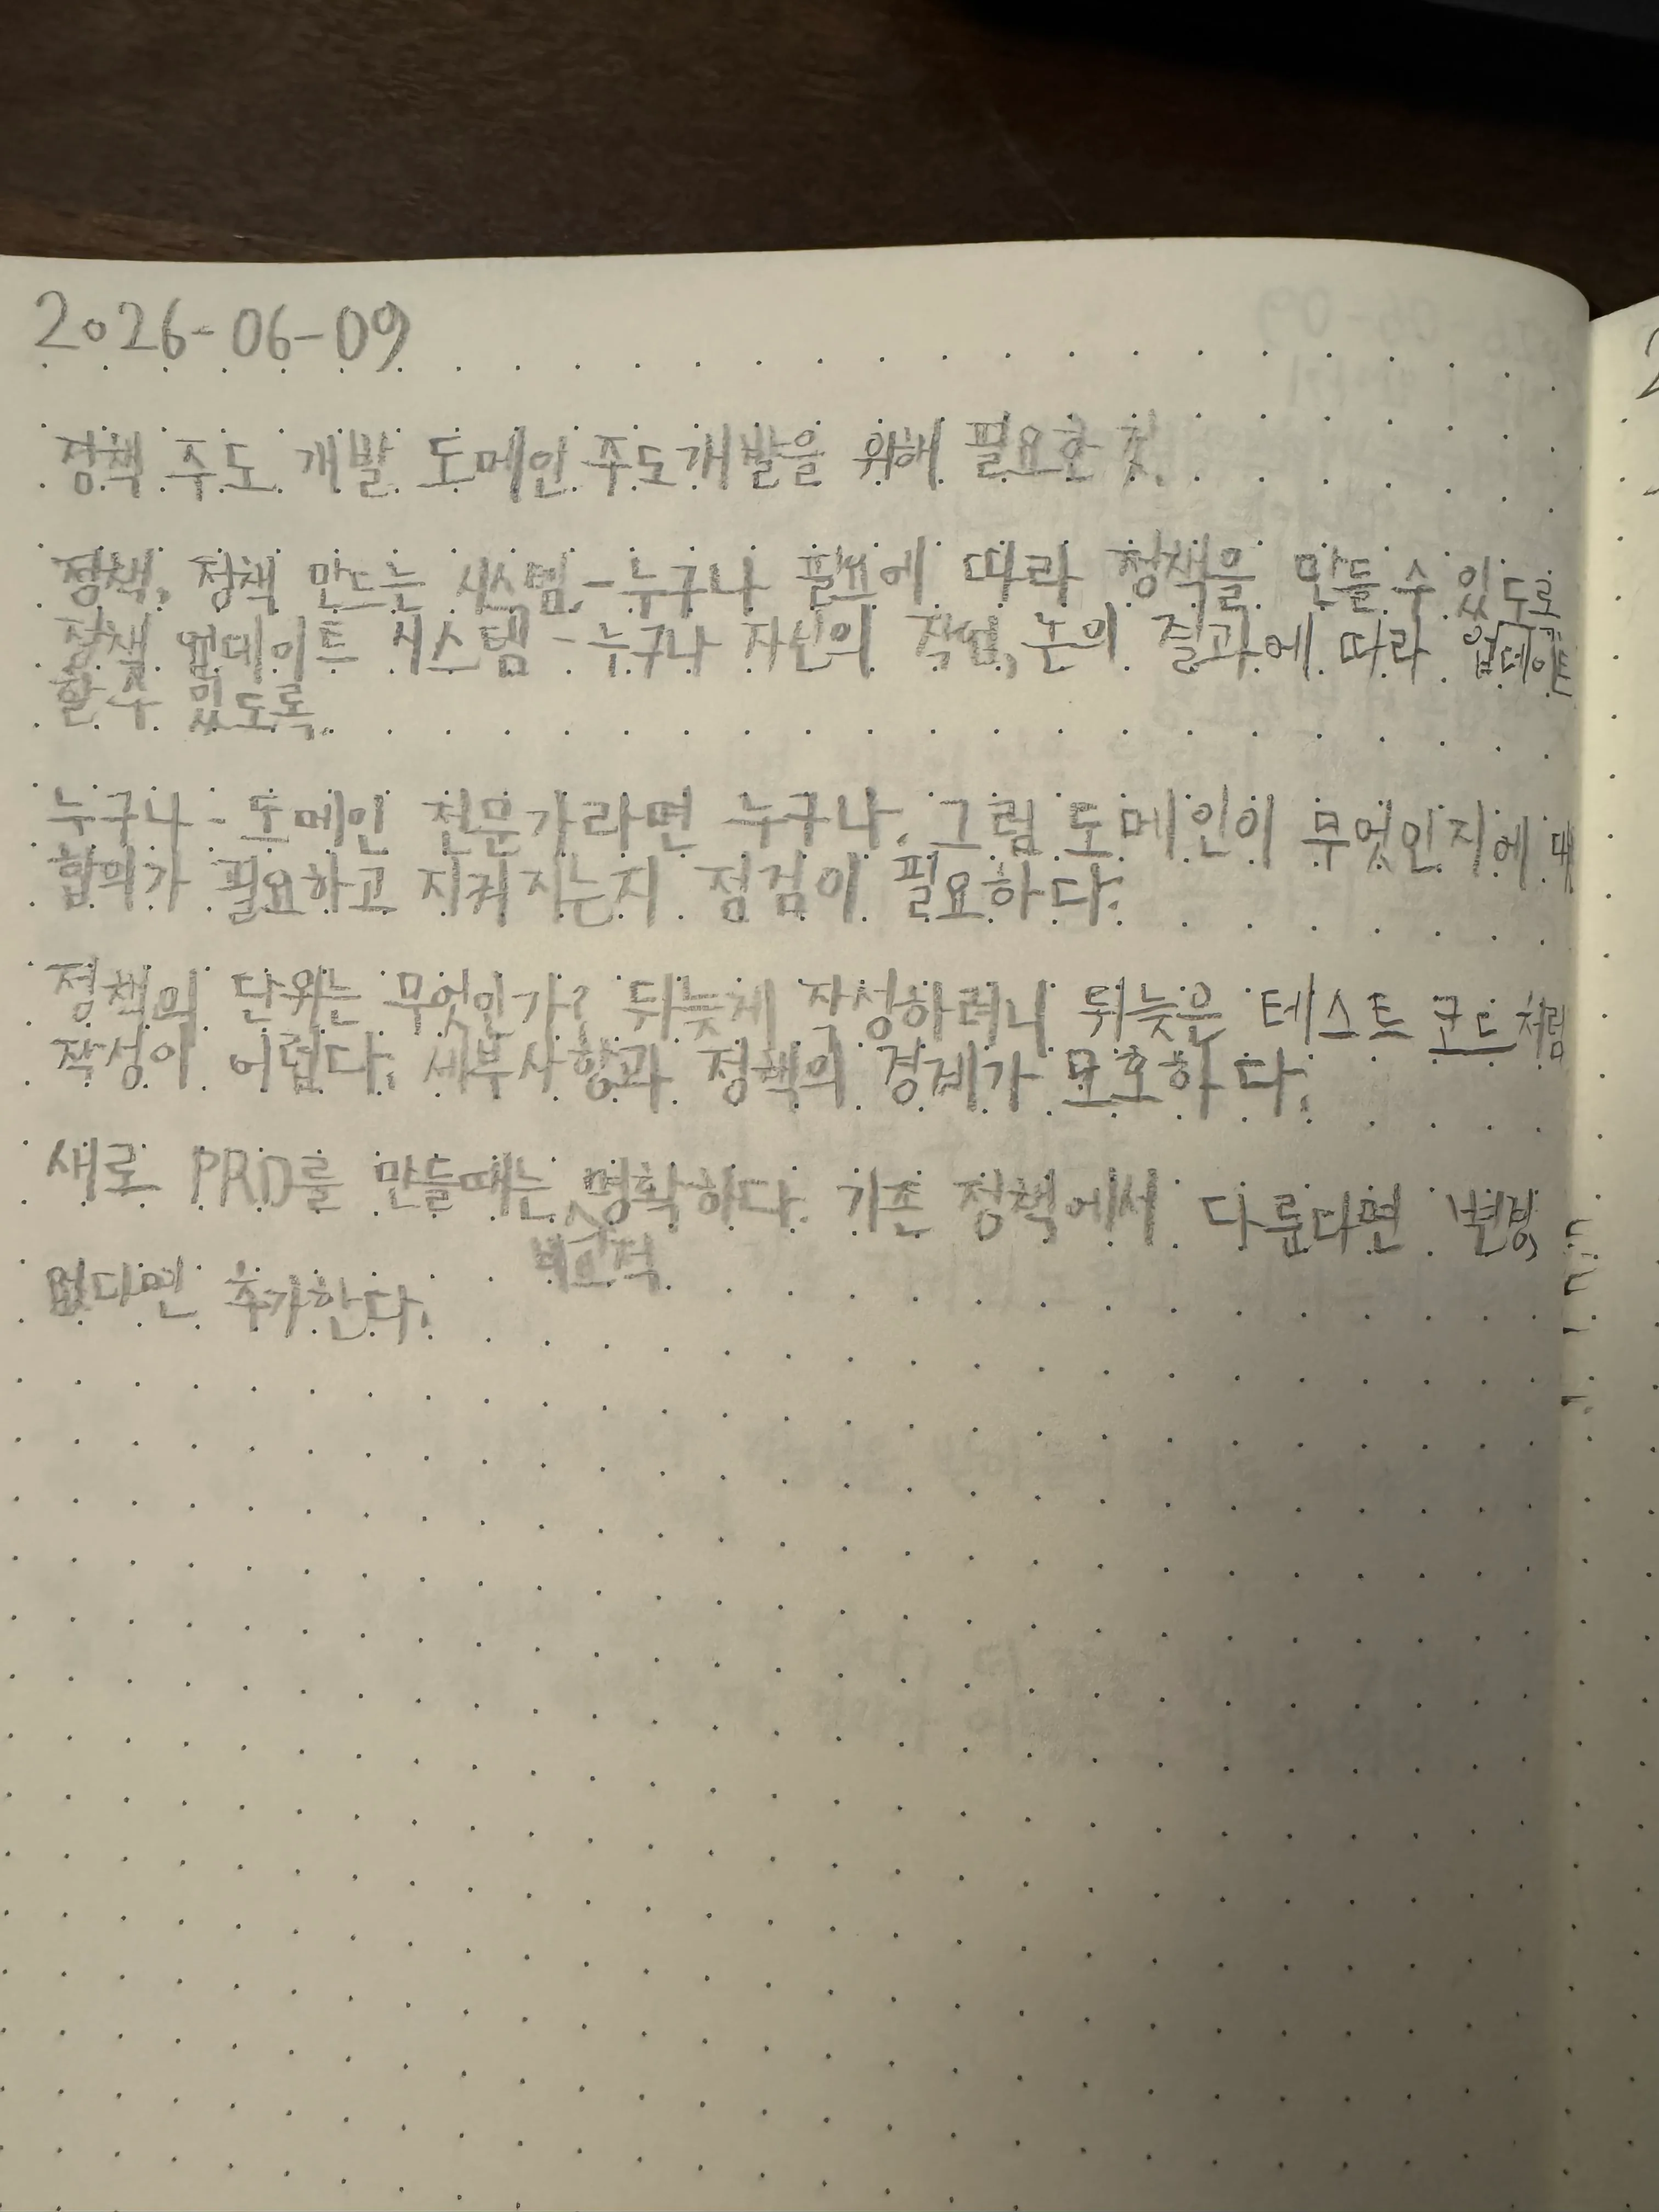 2026-06-09
정책 주도 개발 도메인 주도개발을 위해 필요한 것.
정책, 정책 만드는 시스템, - 누구나 필요에 따라 정책을 만들 수 있도록
정책 업데이트 시스템 - 누구나 자신의 작업, 논의 결과에 따라 업데이트
할 수 있도록.
누구나 - 도메인 전문가라면 누구나. 그럼 도메인이 무엇인지에 대
합의가 필요하고 지켜지는지 점검이 필요하다.
정책의 단위는 무엇인가? 뒤늦게 작성하려니 뒤늦은 테스트 코드처럼
작성이 어렵다. 세부사항과 정책의 경계가 모호하다.
새로 PRD를 만들때는 명확하다. 기존 정책에서 다룬다면 변경,
비교적
없다면 추가한다.